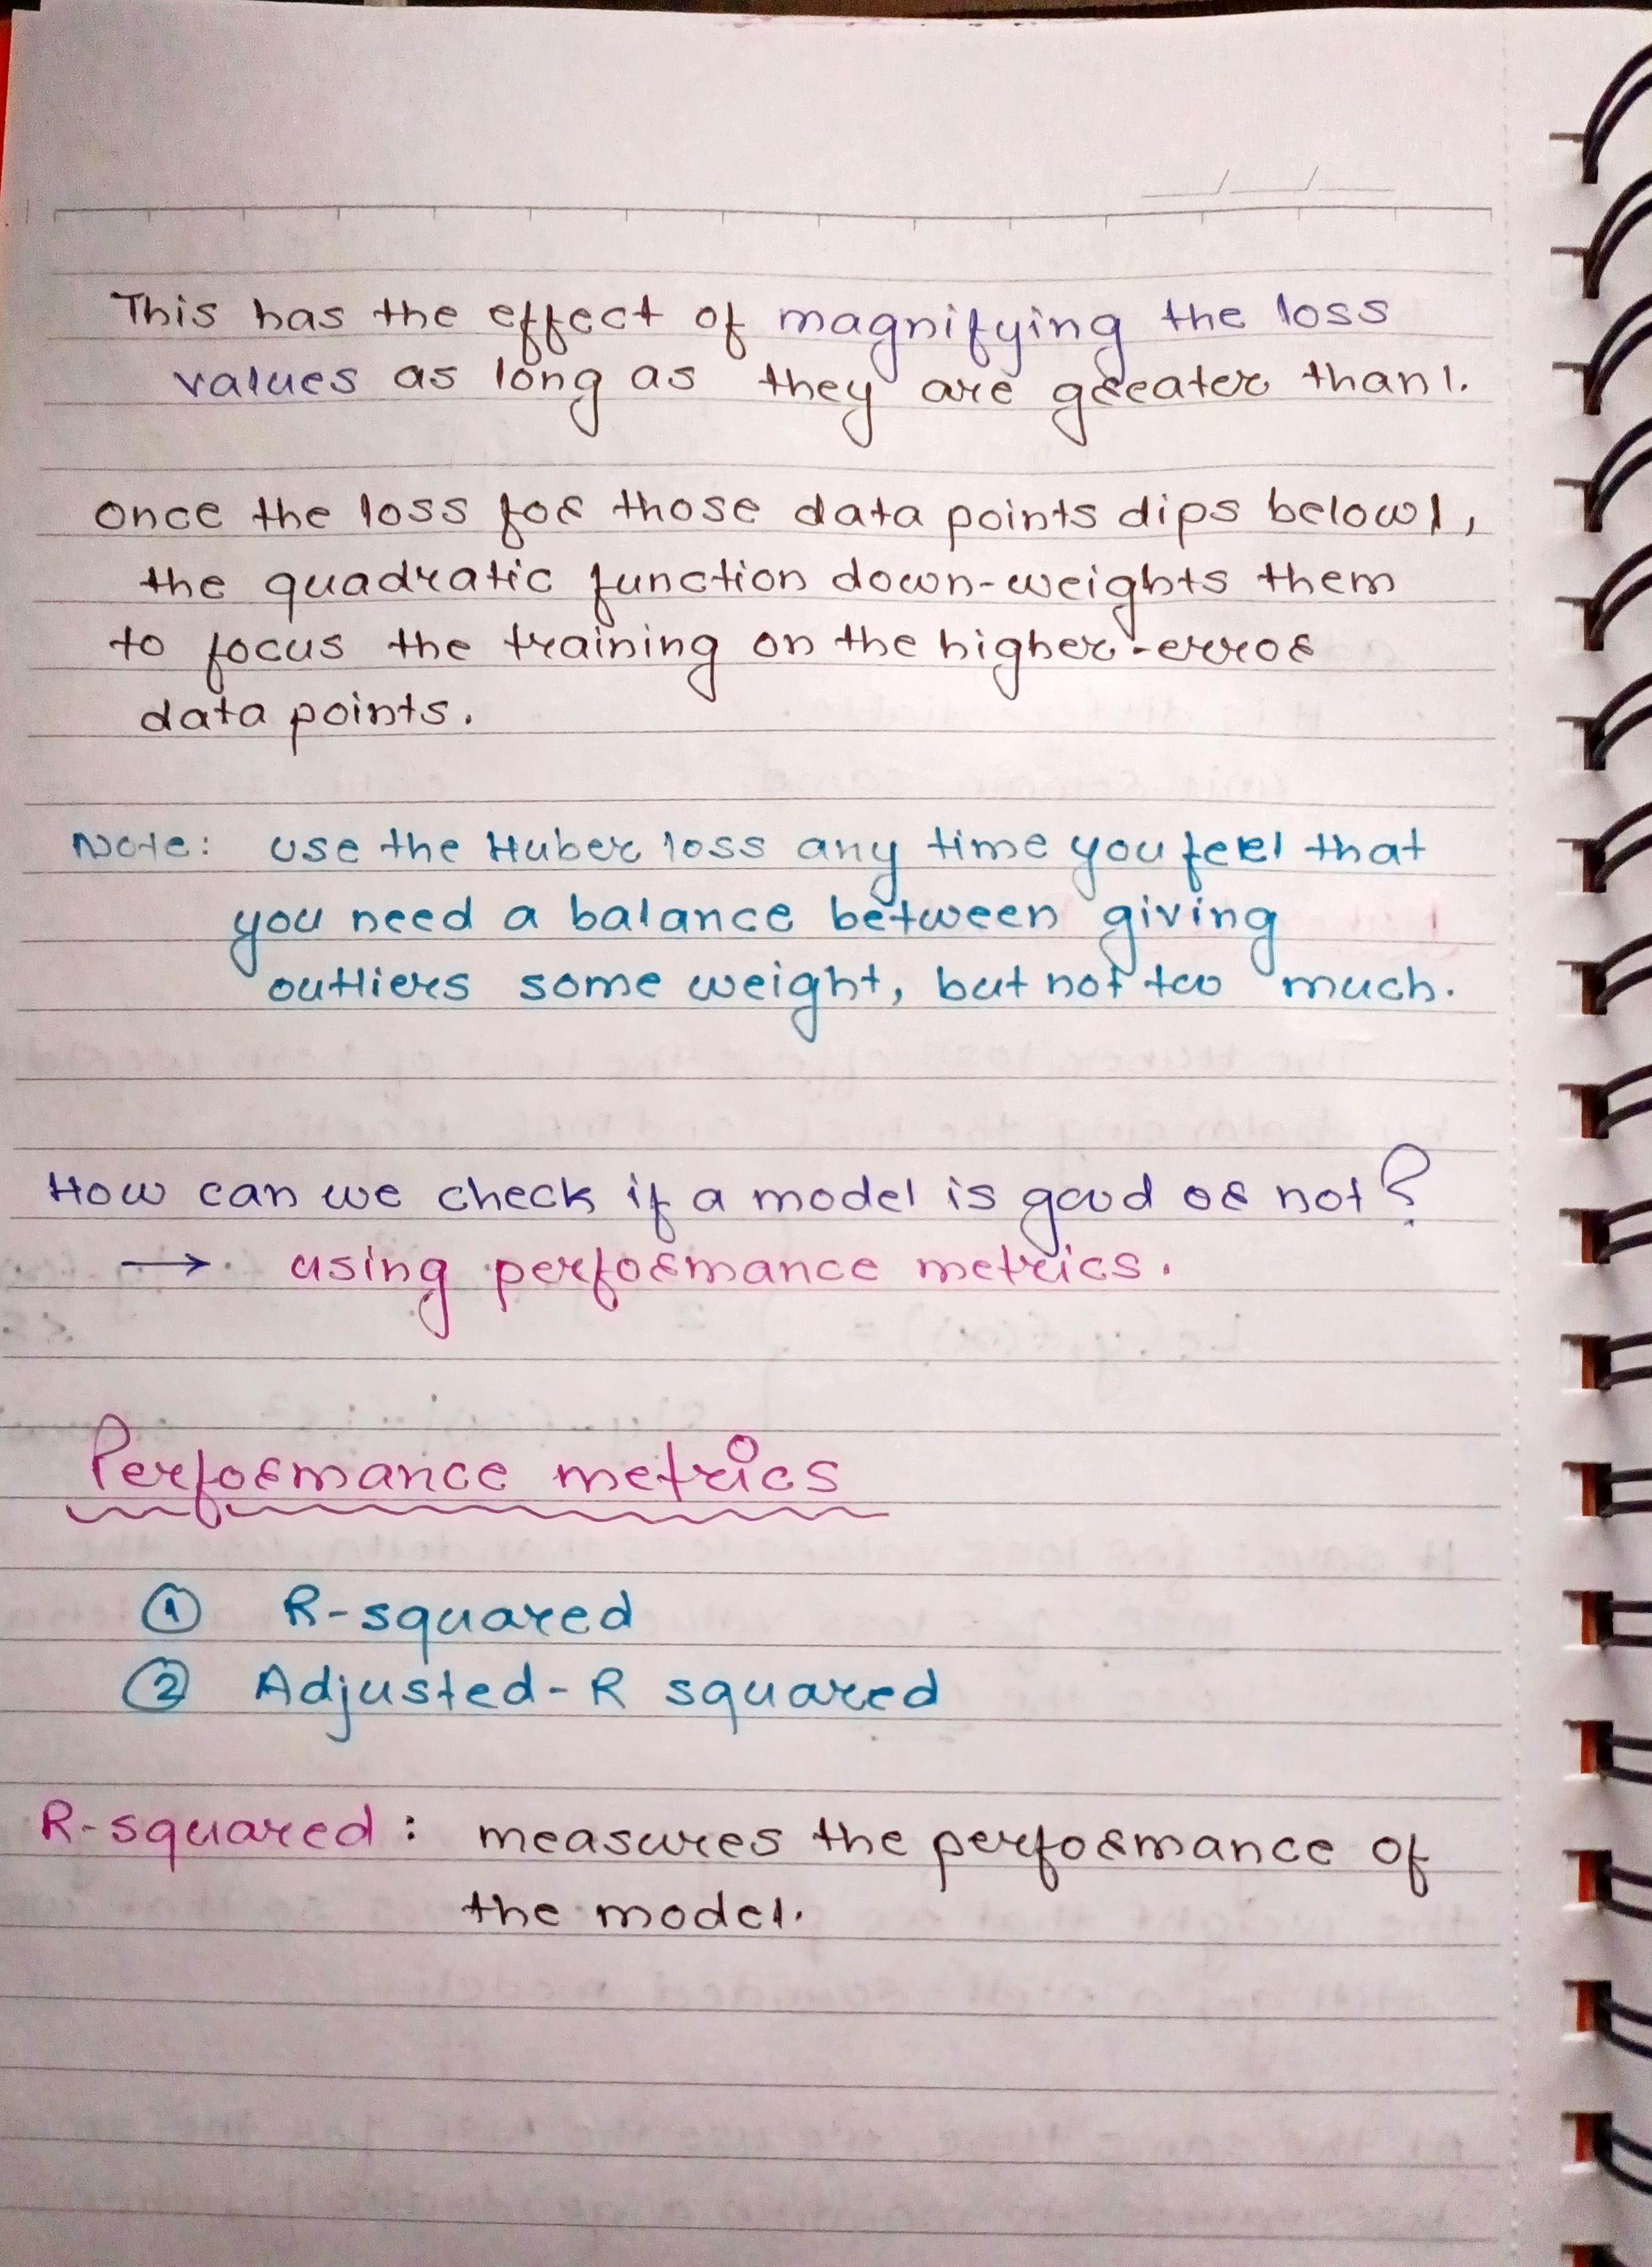 This has the effect of magnifying the loss
values as long as they are greater than 1.
Once the loss for those data points dips below 1,
the quadratic function down-weights them
to focus the training on the higher-error
data points.
Note: Use the Huber loss any time you feel that
you need a balance between giving
outliers some weight, but not too much.
How can we check if a model is good or not?
→ using performance metrics.
Performance metrics
① R-squared
② Adjusted-R squared
R-squared: measures the performance of
the model.